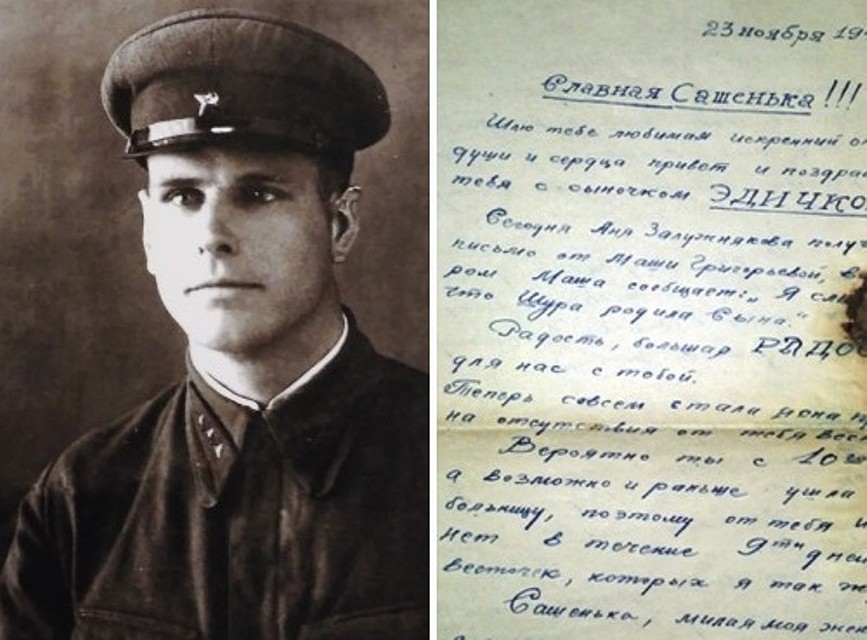 23 ноября 19
Славная Сашенька!!!
Шлю тебе любимая искренний от
души и сердца привет и поздрав
тебя с сыночком ЭДИЧКО
Сегодня Аня Залужнякова получ
письмо от Маши Григорьевой, в
ром Маша сообщает: „Я слы
что Шура родила Сына."
Радость, большая РАДО
для нас с тобой.
Теперь совсем стала
на отсутствия от тебя вес
Вероятно ты с 10
а возможно и раньше ушла
больницу, поэтому от тебя и
нет в течение 9ти дней
весточек, которых я так
Сашенька, милая моя